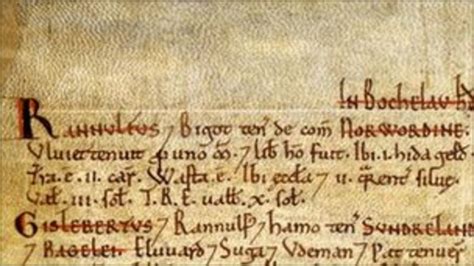 In Bochelav H
Rannulfus 7 Bigot ten' de com NORWORDINE.
Vluiet tenuit p uno m̄. 7 lib ho fuit. Ibi. i. hida geld.
Tra. ē. ii. car. Wasta. ē. Ibi eccła 7 ii. qrent siluę.
Val. iii. sol. T.R.E. ualb. x. sol.
Gislebertus 7 Rannulf 7 hamo ten' SUNDRELAND
7 BAGELEI. Eluuard 7 Suga 7 Udeman 7 Pat tenuer